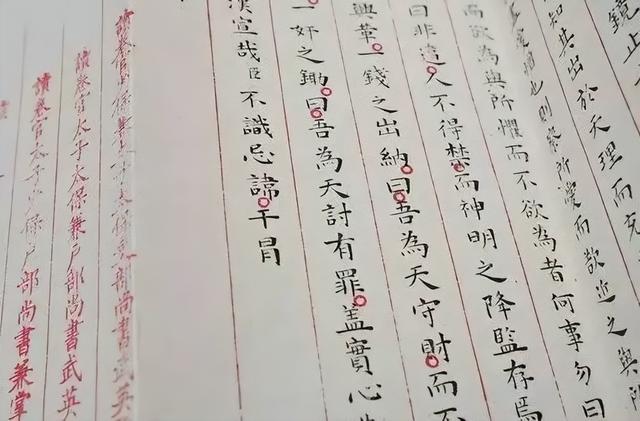 鏡止
知其出於天理而充
也則終所漫而欲近之與所
欲為與所懼而不欲為者何事勿曰
曰非違人不得禁而神明之降監存焉
興革一錢之出納曰吾為天守財而不
一奸之鋤曰吾為天討有罪蓋實心
漢宣哉臣不識忌諱干冒
讀卷官少保兼太子太保部尚書武英
讀卷官太子太保兼戶部尚書武英
讀卷官太子少保戶部尚書兼掌